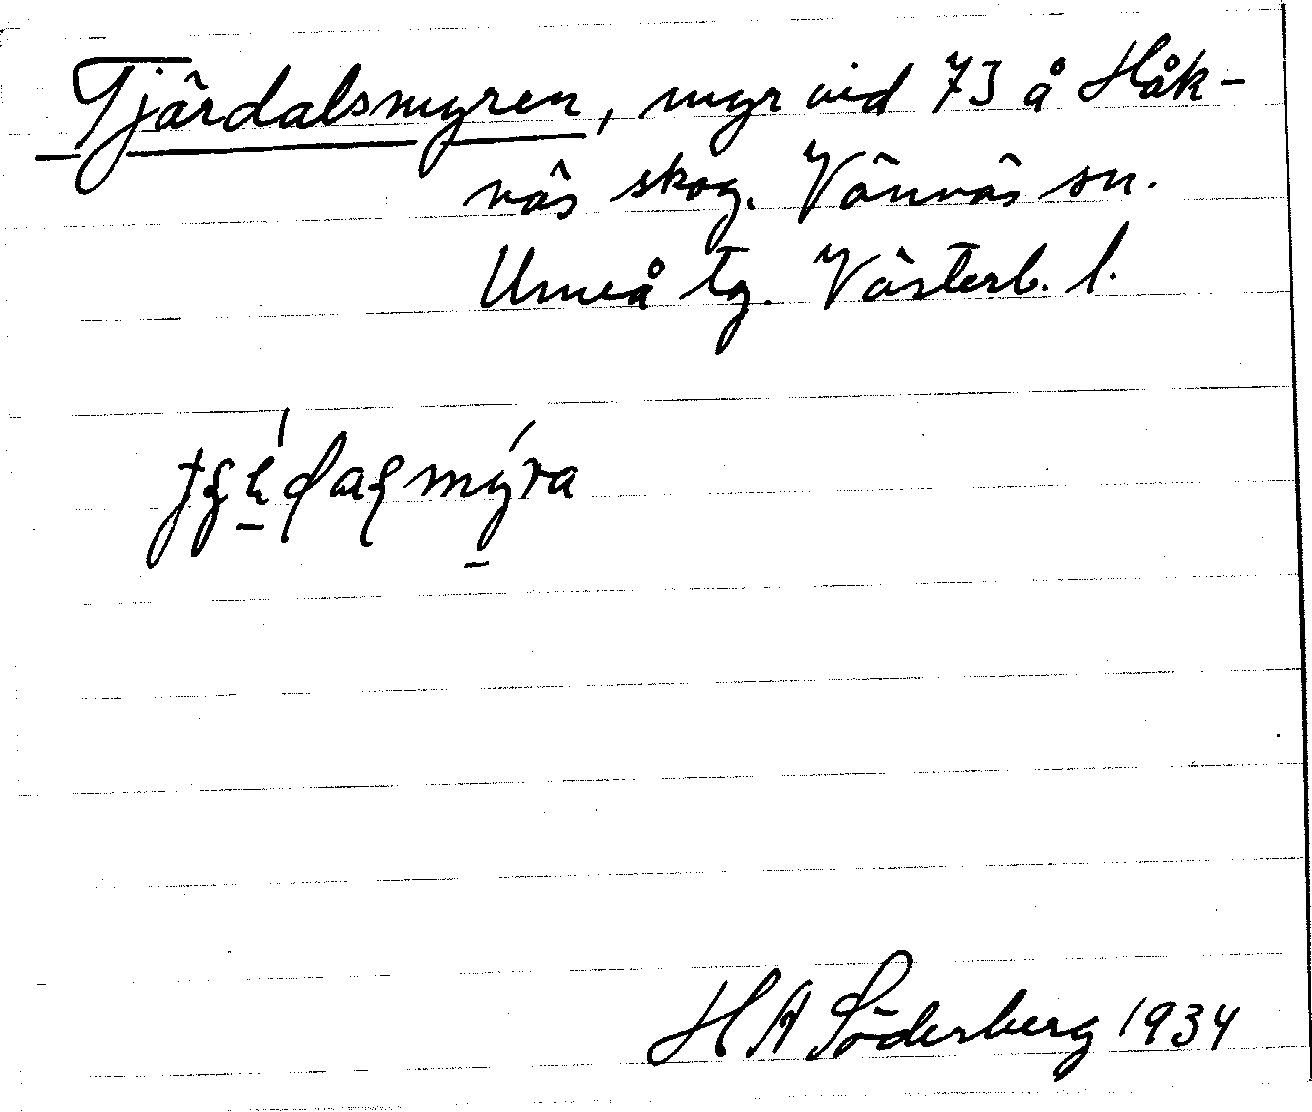 Tjärdalsmyren, myr vid 73 å Håk-
näs skog. Vännäs sn.
Umeå tg. Västerb. l.
H A Söderberg 1934